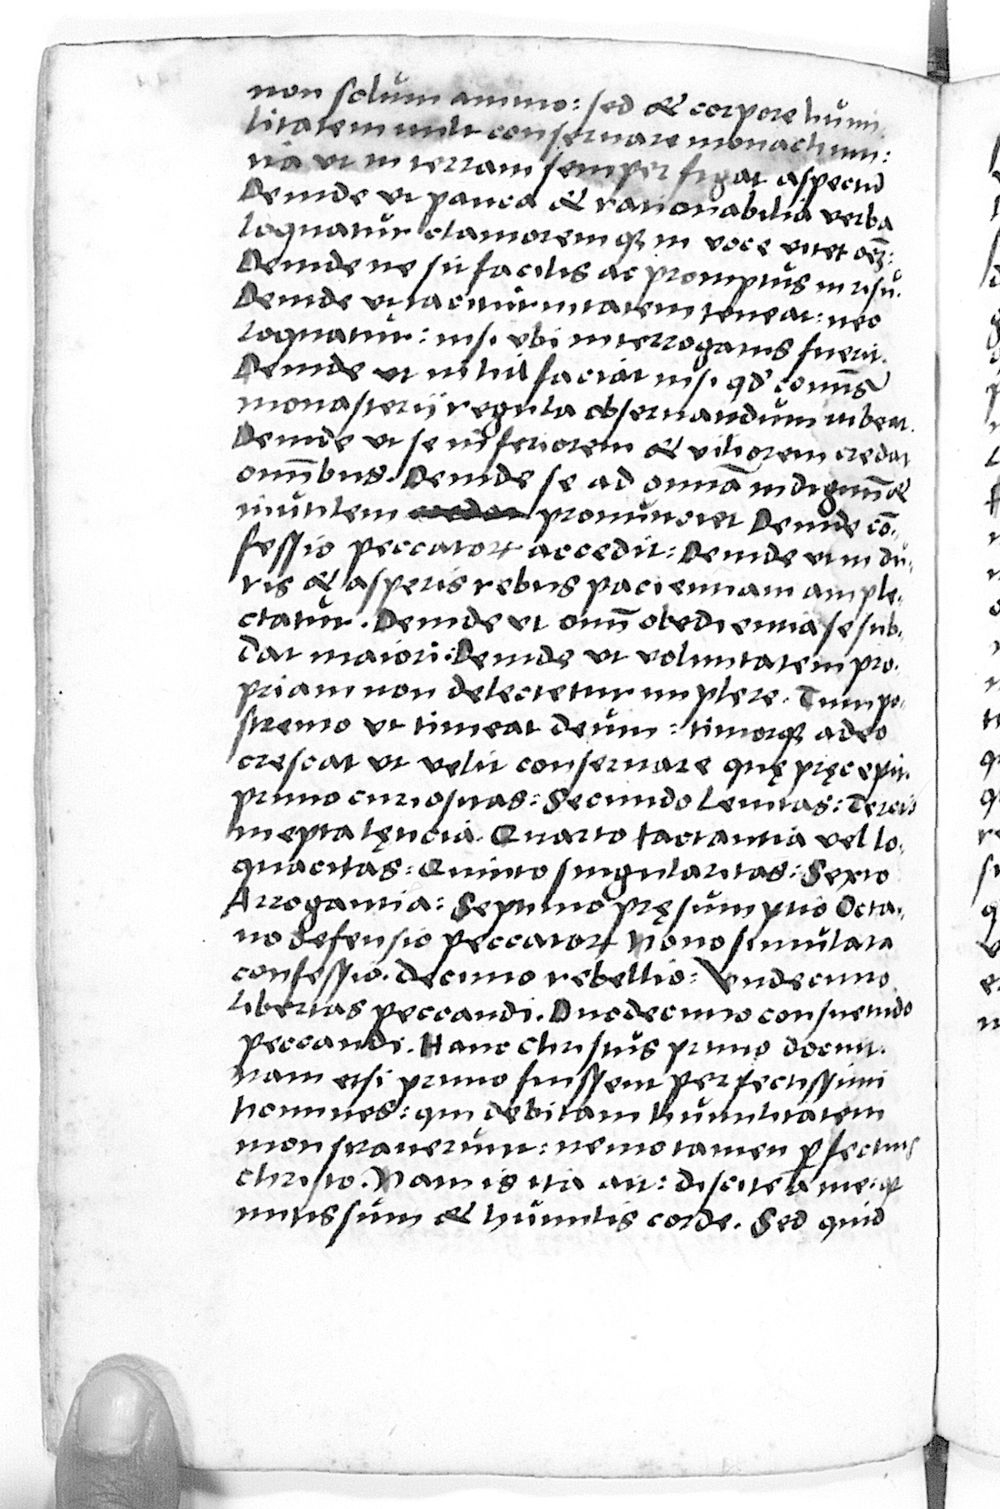 non solum animo: sed & corpore humi-
litatem vult conseruare monachum:
ita vt in terram semper figat aspectū
Deinde vt pauca & rationabilia verba
loquatur clamoremqꝫ in voce vitet
Deinde ne sit facilis ac promptus in risu.
Deinde vt taciturnitatem teneat: nec
loquatur: nisi vbi interrogatus fuerit.
Deinde vt nihil faciat nisi qđ cōmūs
monasterij regula obseruandum iubeat.
Deinde vt se inferiorem & viliorem credat
omībus. Deinde se ad omīa indignū &
inutilem pronunciet Deinde cō-
fessio peccatorꝝ accedit: Deinde vt in du-
ris & asperis rebus pacientiam ample-
ctatur. Deinde vt omī obedientia se sub-
dat maiori: Deinde vt voluntatem pro-
priam non delectetur implere. Tum po-
stremo vt timeat deum: timorqꝫ adeo
crescat vt velit conseruare quę pręcepit.
primo curiositas: Secundo leuitas: Tercio
inepta lęticia. Quarto iactantia vel lo-
quacitas: Quinto singularitas: Sexto
Arrogantia: Septimo pręsumptio Octa-
uo defensio peccatorꝝ Nono simulata
confessio. decimo rebellio: Vndecimo
libertas peccandi. Duodecimo consuetudo
peccandi. Hanc christus primo docuit.
nam etsi primo fuissent perfectissimi
homines: qui debitam humilitatem
monstrauerunt: nemo tamen ꝑfectius
christo. Nam is ita ait: discite a me: qꝫ
mitis sum & humilis corde. Sed quid